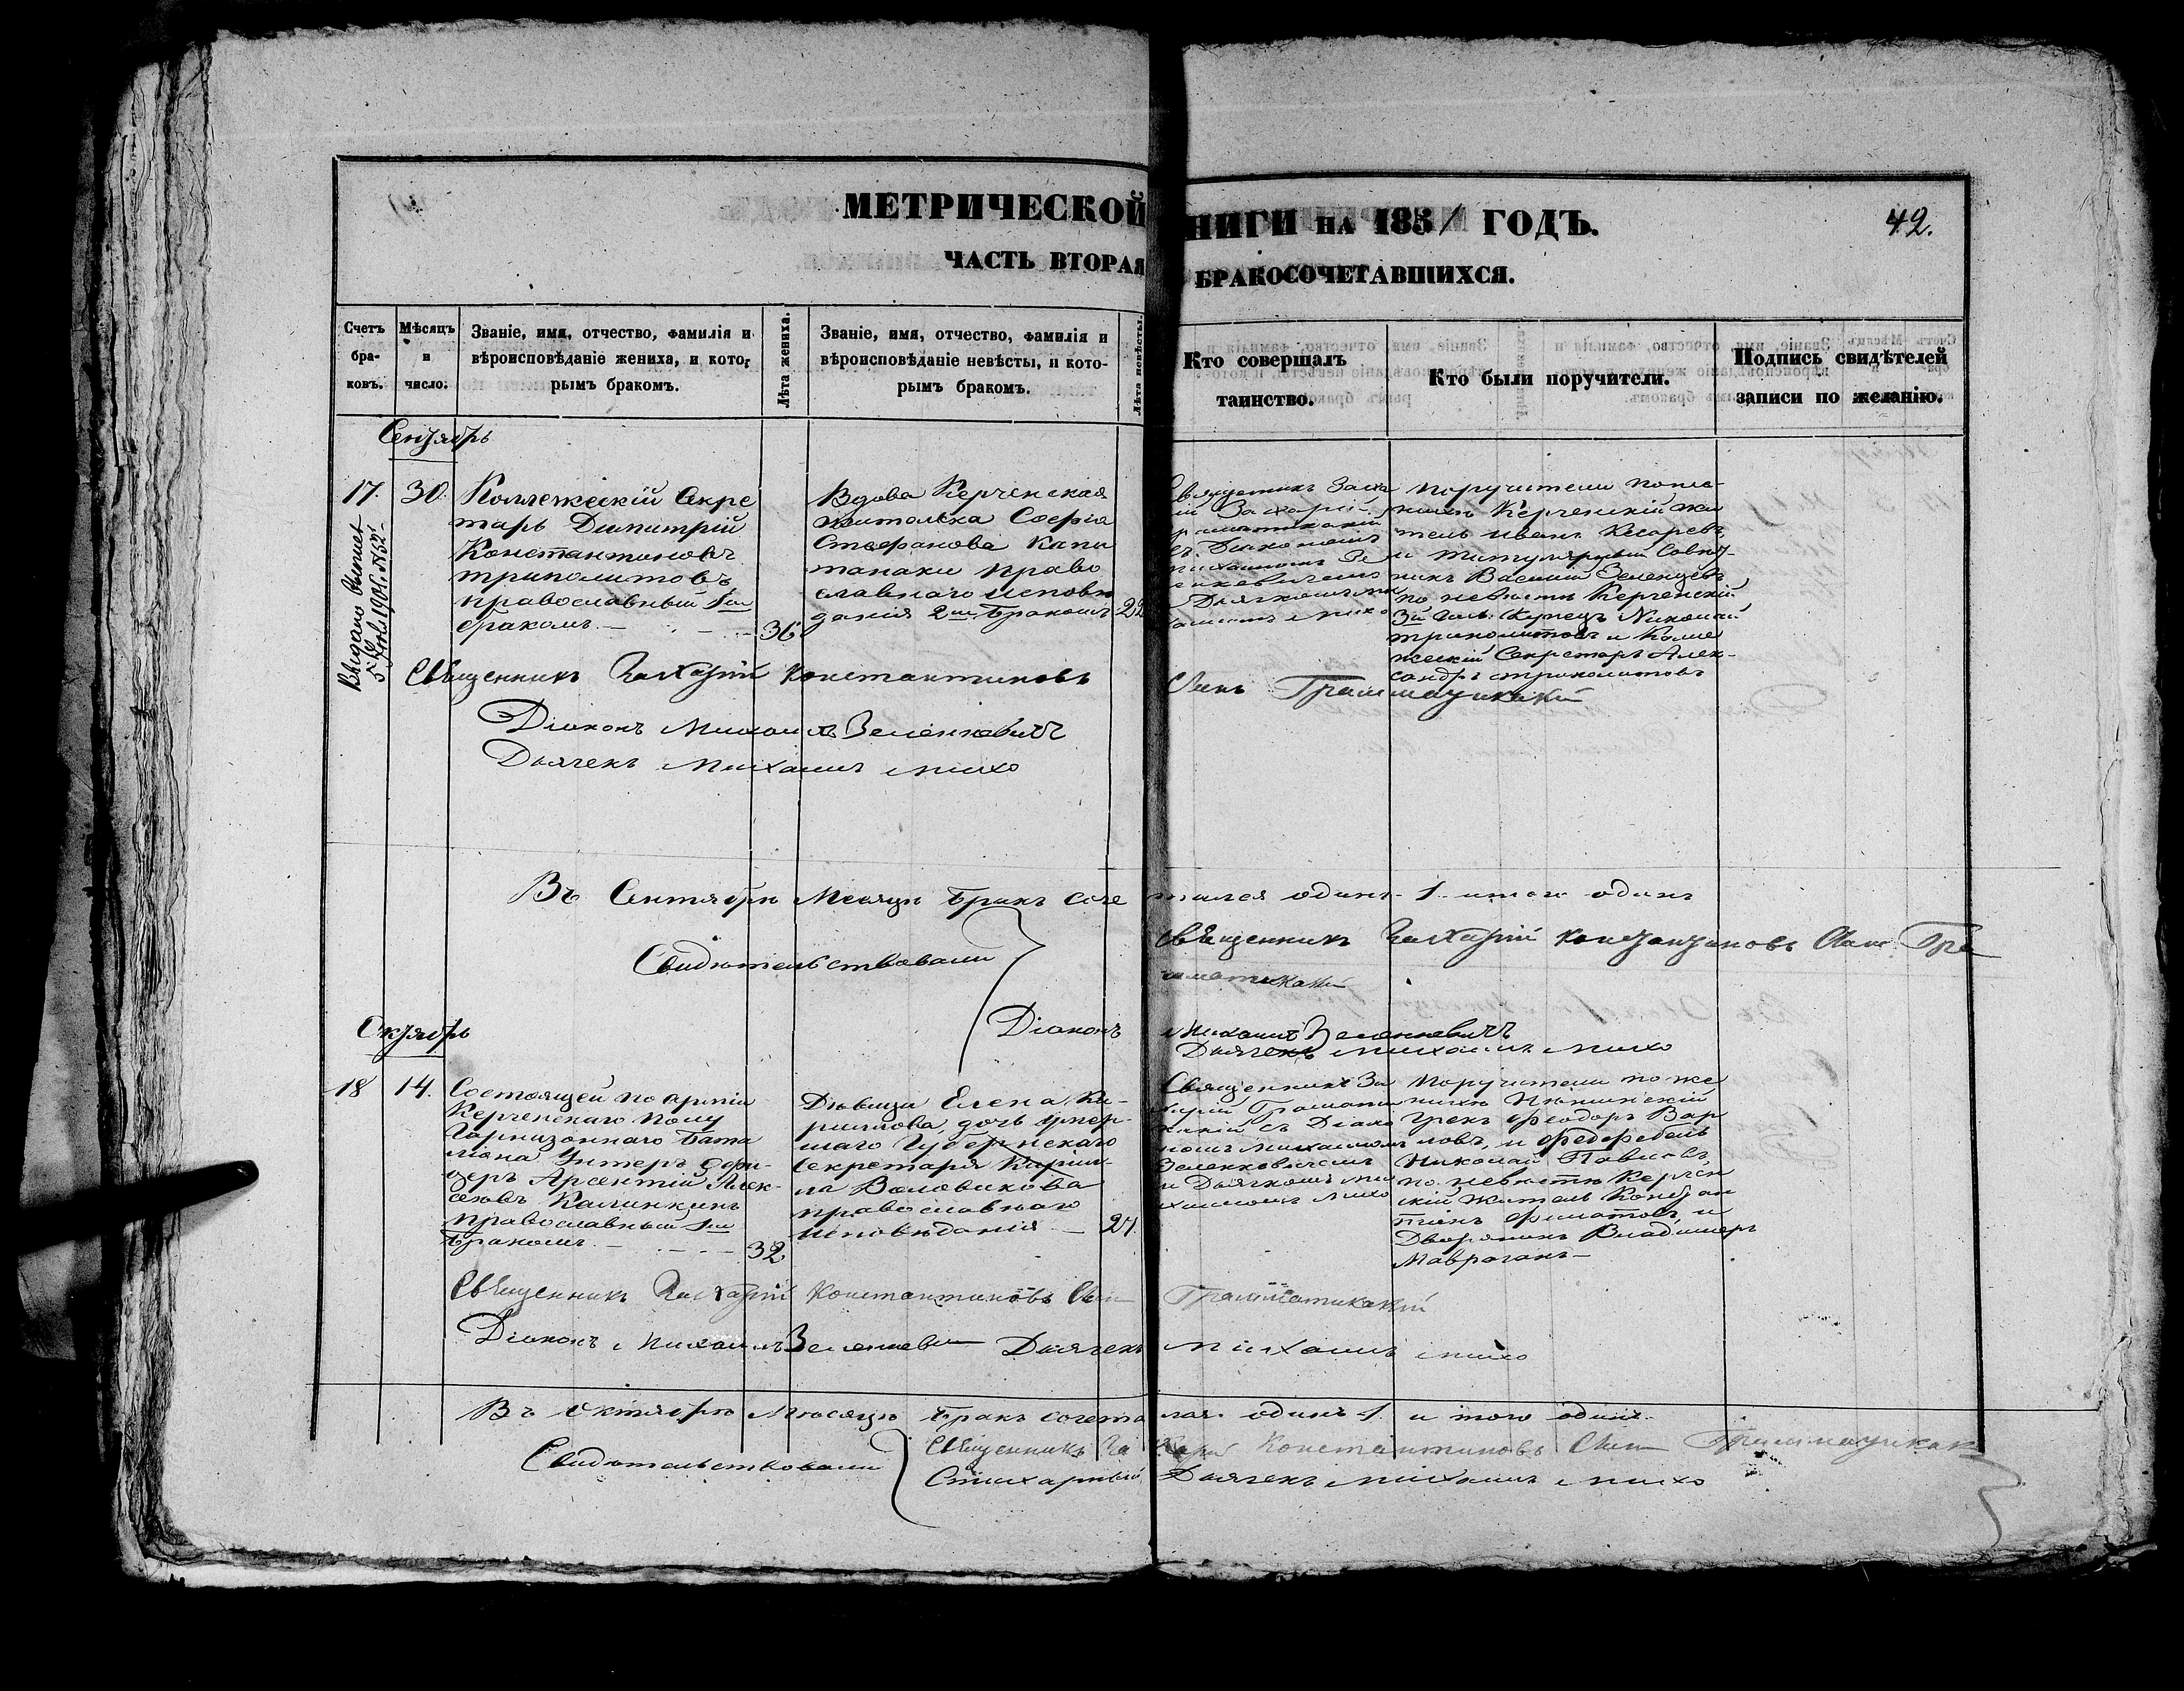 МЕТРИЧЕСКОЙ
НИГИ НА 1851 ГОДЪ.
42.
ЧАСТЬ ВТОРАЯ
БРАКОСОЧЕТАВШИХСЯ.
Счетъ бра-ковъ.
Мѣсяцъ и число.
Званіе, имя, отчество, фамилія и
вѣроисповѣданіе жениха, и кото-
рымъ бракомъ.
Лѣта жениха.
Званіе, имя, отчество, фамилія и
вѣроисповѣданіе невѣсты, и кото-
рымъ бракомъ.
Лѣта невѣсты.
Кто совершалъ
таинство.
Кто были поручители.
Подпись свидѣтелей
записи по желанію.
Сентябрь
17.
30.
Коллежскій Секре
тарь Димитрій
Константиновъ
триполитовъ
православный 1мъ
бракомъ.
36
Вдова Керченская
жителька Софія
Стефанова Капи
танаки право
славнаго исповѣ
данія 2мъ бракомъ
22
Священникъ Заха
ій
съ Діакономъ
Михаиломъ Зе
енкевичемъ
Дьячкомъ Ми
хаиломъ Михо
Поручители по же
нихѣ Керченскій жи
тель Иванъ Кесаревъ,
и Титулярный Совѣт-
никъ Василій Зеленцевъ
по невѣстѣ Керченскій
3й Гиль. Купецъ Николай
триполитовъ и Колле
жскій Секретарь Алек-
сандръ триполитовъ
Выдано выпись
5 1904. №52.
Священникъ Захарій Константиновъ
Сынъ Грамматикакій
Діаконъ Михаилъ Зеленкевичъ
Дьячекъ Михаилъ Михо
Въ Сентябрѣ Месяцѣ бракъ соче
тался одинъ 1. итого одинъ
Свидѣтельствовали
Священникъ Захарій Константиновъ Сынъ Гра
мматикакій
Діаконъ
Михаилъ Зеленкевичъ
Дьячекъ Михаилъ Михо
Октябрь
18
14.
Состоящей по арміи
Керченскаго Полу
Гарнизоннаго Бата
ліона Унтеръ Офи-
церъ Арсентій Алек-
сѣевъ Калинкинъ
православный 1мъ
бракомъ.
32
Дѣвица Елена Ки-
рилова дочь умер-
шаго Губернскаго
Секретаря Кирил-
ла Воловикова
православнаго
исповѣданія
21.
Священникъ За
харій Граммати
какій съ Діако
номъ Михаиломъ
Зеленковичемъ
и Дьячкомъ Ми
хаиломъ Михо
Поручители по же
нихѣ Нѣжинскій
Грекъ Феодоръ Вар
ловъ, и Фельдфебель
Николай Павловъ
по невѣстѣ Керчен
скій житель Констан
тинъ Филатовъ и
Дворянинъ Владимеръ
Маврогани
Священникъ Захарій Константиновъ Сынъ
Грамматикакій
Діаконъ Михаилъ Зеленкеви Дьячекъ
Михаилъ Михо
Въ Октябрѣ Мѣсяцѣ бракъ сочета
лся одинъ 1. и того одинъ.
Свидѣтельствовали
Священникъ За
харій Константиновъ Сынъ Грамматикак
Стихарный
Дьячекъ Михаилъ Михо